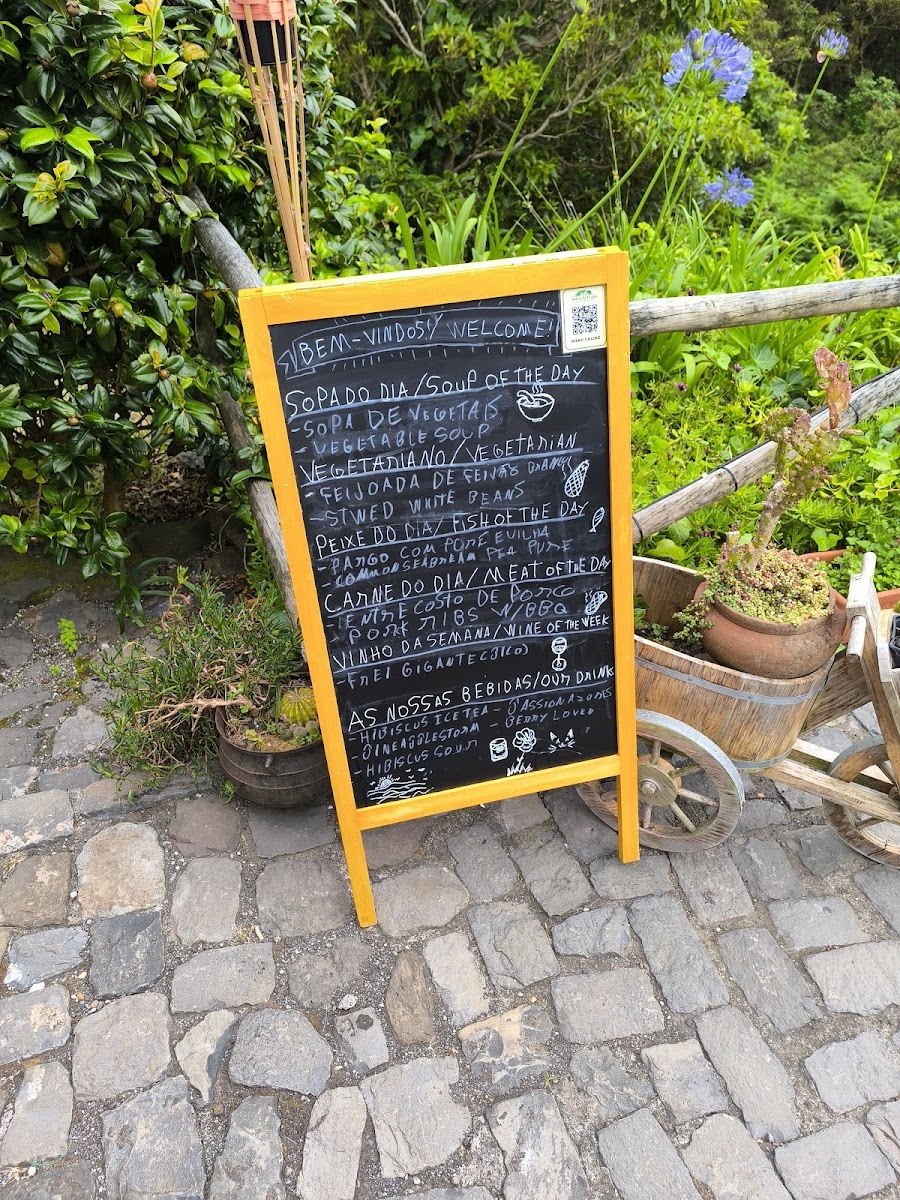 BEM-VINDOS!/ WELCOME!
SOPA DO DIA/SOUP OF THE DAY
-SOPA DE VEGETAIS
-VEGETABLE SOUP
VEGETARIANO/VEGETARIAN
-FEIJOADA DE FEIJÃO BRANCO
-STWED WHITE BEANS
PEIXE DO DIA/ FISH OF THE DAY
-PARGO COM PURÉ EVILHA
-COMMON SEABREAM PEA PURE
CARNE DO DIA/MEAT OF THE DAY
-ENTRECOSTO DE PORCO
-PORK RIBS W/BBQ
VINHO DA SEMANA/WINE OF THE WEEK
-FREI GIGANTE (PICO)
AS NOSSAS BEBIDAS/OUR DRINKS
-HIBISCUS ICE TEA - PASSION AZORES
-PINEAPPLESTORM - BERRY LOVER
-HIBISCUS SOUR